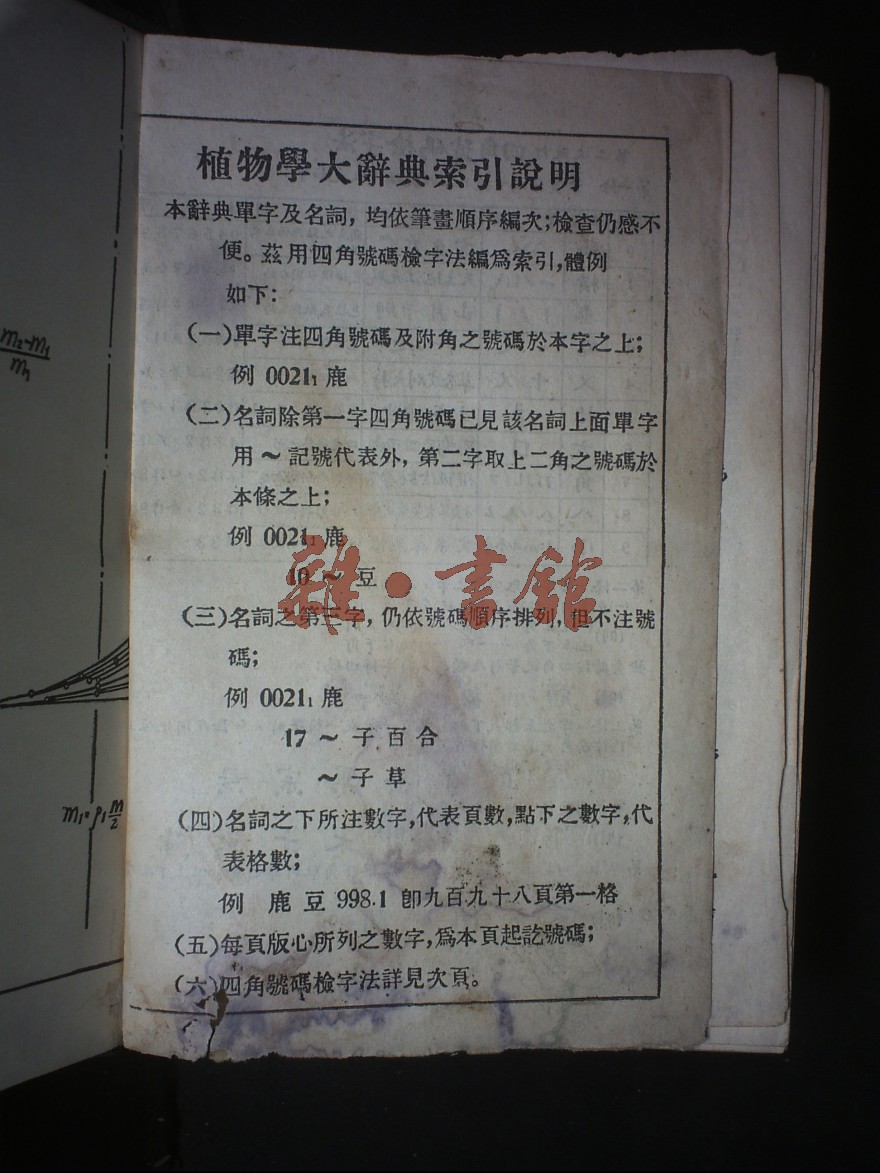 植物學大辭典索引說明
本辭典單字及名詞，均依筆畫順序編次；檢查仍感不
便。茲用四角號碼檢字法編爲索引，體例
如下：
（一）單字注四角號碼及附角之號碼於本字之上；
例 0021₁ 鹿
（二）名詞除第一字四角號碼已見該名詞上面單字
用～記號代表外，第二字取上二角之號碼於
本條之上；
例 0021₁ 鹿
10 ～ 豆
雜·書館
（三）名詞之第三字，仍依號碼順序排列，但不注號
碼；
例 0021₁ 鹿
17 ～ 子百合
～ 子草
（四）名詞之下所注數字，代表頁數，點下之數字，代
表格數；
例 鹿豆 998.1 卽九百九十八頁第一格
（五）每頁版心所列之數字，爲本頁起訖號碼；
（六）四角號碼檢字法詳見次頁。